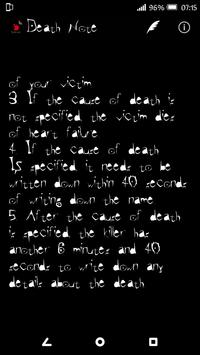 96% 07:15
Death Note
of your victim
3 If the cause of death is
not specified the victim dies
of heart failure
4 If the cause of death
IS specified it needs to be
written down within 40 seconds
of writing down the name
5 After the cause of death
is specified the killer has
another 6 minutes and 40
seconds to write down any
details about the death